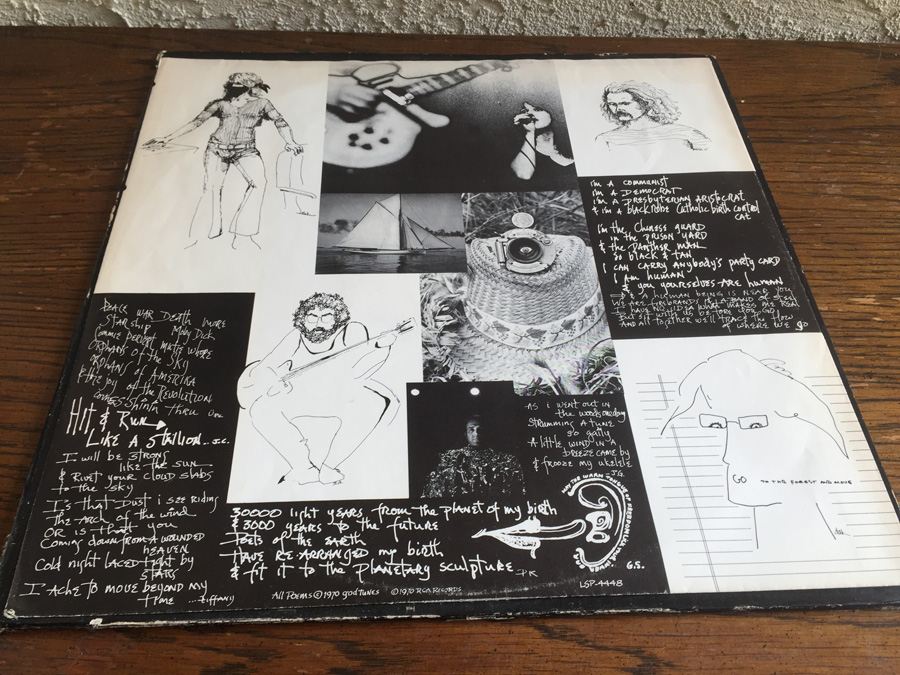 i'm a communist
i'm a DEMOCRAT
i'm a presbyterian aristocrat
& i'm a black robe Catholic birth control
cat
i'm the Chinese guard
in the prison yard
& the panther man
so black & tan
i can carry anybody's party card
I am human
& you yourselves are human
a human being is near you
but sit with us before you go
and all together we'll trace the flow
of where we go
Peace War Death more
Starship Moby Dick
Orphans of the sky
orphan of Amerika
& the joy of the Revolution
comes shinin thru
Hit & Run
Like a Stallion .. J.C.
I will be strong
like the sun
& Rivet your cloud slabs
to the sky
Is that Dust i see riding
The arch of the wind
OR is that you
Coming down from a wounded
heaven
Cold night laced tight by
stars
I Ache To move beyond my
time ... tiffany
As i went out in
the woods one day
strumming a tune
so gaily
A little wind in a
breeze came by
& frooze my ukelele
J.G.
30000 light years from the planet of my birth
& 3000 years to the future
Poets of the earth
Have re-arranged my birth
& fit it to the planetary sculpture PK
G.S.
GO TO THE FOREST AND MOVE
LSP-4448
All Poems © 1970 god Tunes © 1970 RCA Records